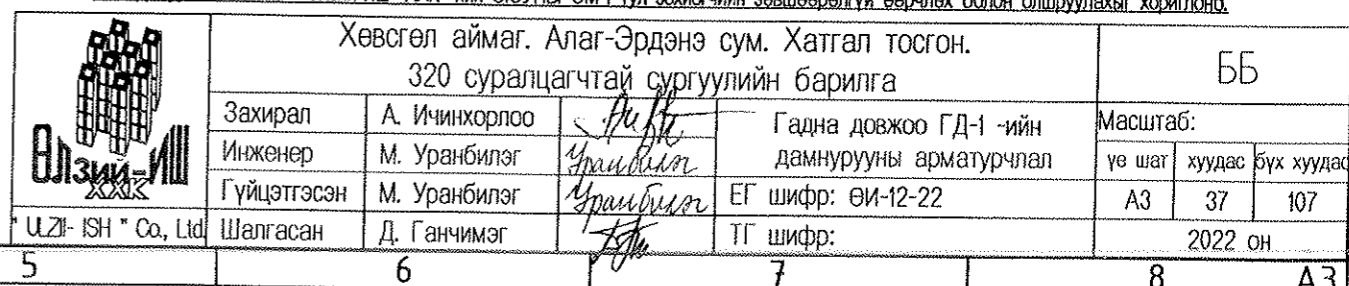 зөвшөөрөлгүй өөрчлөх болон олшруулахыг хориглоно.
Хөвсгөл аймаг. Алаг-Эрдэнэ сум. Хатгал тосгон.
320 суралцагчтай сургуулийн барилга
ББ
Өлзий-ИШ
ХХК
" ULZII- ISH " Co., Ltd
Захирал
А. Ичинхорлоо
Инженер
М. Уранбилэг
Уранбилэг
Гүйцэтгэсэн
М. Уранбилэг
Уранбилэг
Шалгасан
Д. Ганчимэг
Гадна довжоо ГД-1 -ийн
дамнурууны арматурчлал
ЕГ шифр: ӨИ-12-22
ТГ шифр:
Масштаб:
үе шат хуудас бүх хуудас
А3 37 107
2022 он
5 6 7 8 А3